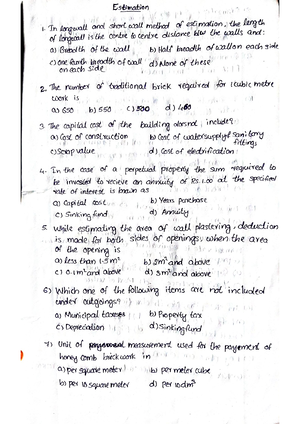 Estimation
1. In longwall and short wall method of estimation, the length
of longwall is the centre to centre distance b/w the walls and:
a) Breadth of the wall b) Half breadth of wall on each side
c) one fourth breadth of wall d) None of these
on each side
2. The number of traditional brick required for 1 cubic metre
work is
a) 650 b) 550 c) 500 d) 460
3. The capital cost of the building doesnot, include?
a) Cost of construction b) Cost of watersupply & sanitary
fittings
c) Scrap value d) Cost of electrification
4. In the case of a perpetual property the sum required to
be invested to recieve an annuity of Rs. 1.00 at the specified
rate of interest is known as
a) Capital cost b) Years purchase
c) Sinking fund d) Annuity
5. While estimating the area of wall plastering, deduction
is made for both sides of openings, when the area
of the opening is
a) less than 1.5m² b) 2m² and above
c) 0.1m² and above d) 3m² and above
6) Which one of the following items are not included
under outgoings?
a) Municipal taxes b) Property tax
c) Depreciation d) Sinking fund
7) Unit of measurement used for the payement of
honey comb brickwork in
a) per square meter b) per meter cube
b) per 10 square meter d) per 10dm²